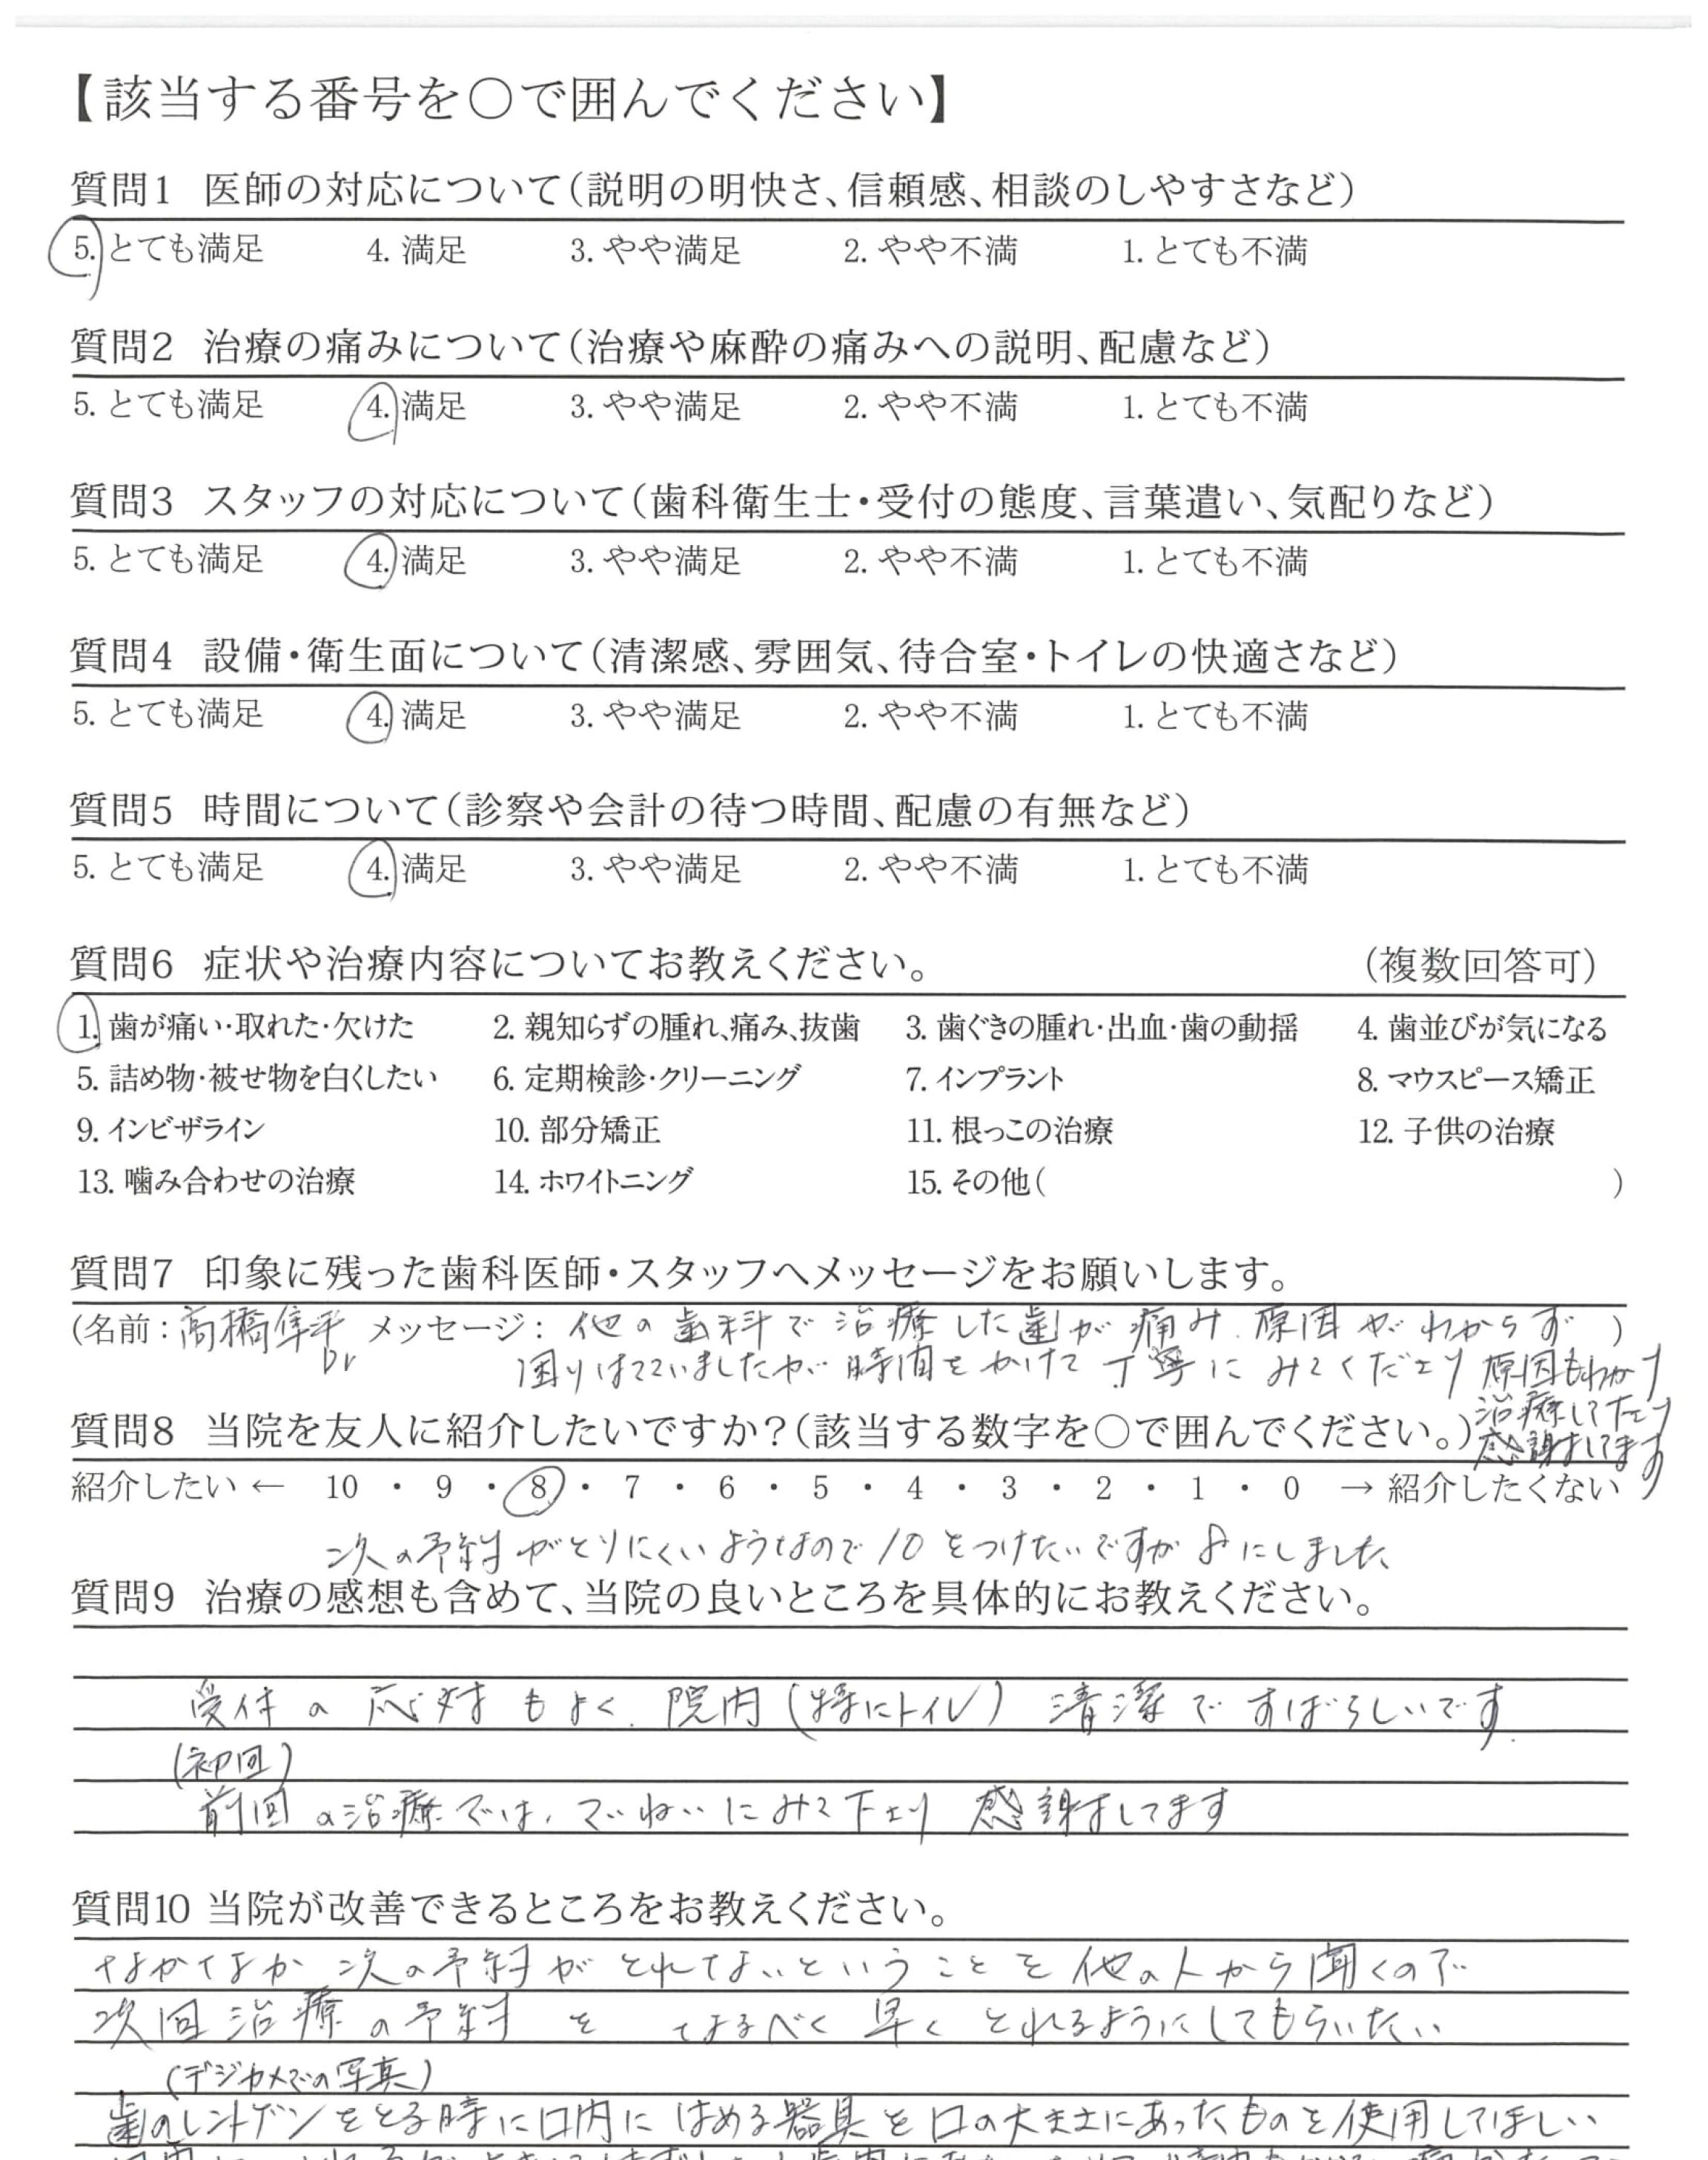 【該当する番号を○で囲んでください】
質問1 医師の対応について(説明の明快さ、信頼感、相談のしやすさなど)
5. とても満足 4. 満足 3. やや満足 2. やや不満 1. とても不満
質問2 治療の痛みについて(治療や麻酔の痛みへの説明、配慮など)
5. とても満足 4. 満足 3. やや満足 2. やや不満 1. とても不満
質問3 スタッフの対応について(歯科衛生士・受付の態度、言葉遣い、気配りなど)
5. とても満足 4. 満足 3. やや満足 2. やや不満 1. とても不満
質問4 設備・衛生面について(清潔感、雰囲気、待合室・トイレの快適さなど)
5. とても満足 4. 満足 3. やや満足 2. やや不満 1. とても不満
質問5 時間について(診察や会計の待つ時間、配慮の有無など)
5. とても満足 4. 満足 3. やや満足 2. やや不満 1. とても不満
質問6 症状や治療内容についてお教えください。 (複数回答可)
1. 歯が痛い・取れた・欠けた 2. 親知らずの腫れ、痛み、抜歯 3. 歯ぐきの腫れ・出血・歯の動揺 4. 歯並びが気になる
5. 詰め物・被せ物を白くしたい 6. 定期検診・クリーニング 7. インプラント 8. マウスピース矯正
9. インビザライン 10. 部分矯正 11. 根っこの治療 12. 子供の治療
13. 噛み合わせの治療 14. ホワイトニング 15. その他( )
質問7 印象に残った歯科医師・スタッフへメッセージをお願いします。
(名前: 高橋隼平 メッセージ: 他の歯科で治療した歯が痛み、原因がわからず )
Dr 困りはてていましたが、時間をかけて丁寧にみてくださり原因もわかり
治療して下さり
感謝してます
質問8 当院を友人に紹介したいですか?(該当する数字を○で囲んでください。)
紹介したい ← 10 ・ 9 ・ 8 ・ 7 ・ 6 ・ 5 ・ 4 ・ 3 ・ 2 ・ 1 ・ 0 → 紹介したくない
次の予約がとりにくいようなので10をつけたいですが8にしました
質問9 治療の感想も含めて、当院の良いところを具体的にお教えください。
受付の応対もよく、院内(特にトイレ)清潔ですばらしいです。
(初回)
前回の治療では、ていねいにみて下さり感謝してます
質問10 当院が改善できるところをお教えください。
なかなか次の予約がとれないということを他の人から聞くので
次回治療の予約をなるべく早くとれるようにしてもらいたい
(デジカメでの写真)
歯のレントゲンをとる時に口内にはめる器具を口の大きさにあったものを使用してほしい